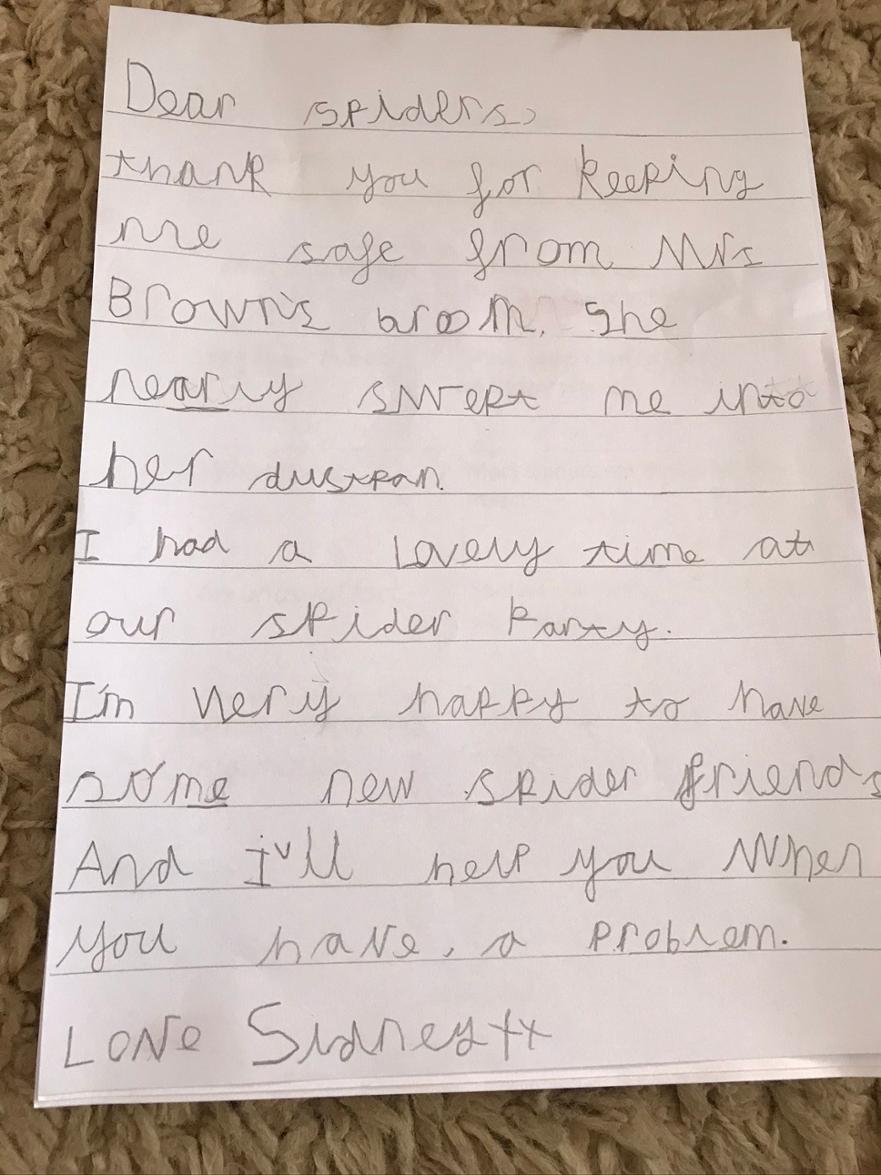 Dear spiders,
thank you for keeping
me safe from Mrs
Brown's broom. She
nearly swept me into
her dustpan.
I had a lovely time at
our spider party.
I'm very happy to have
some new spider friends
And I'll help you when
you have, a problem.
Love Sidney xx